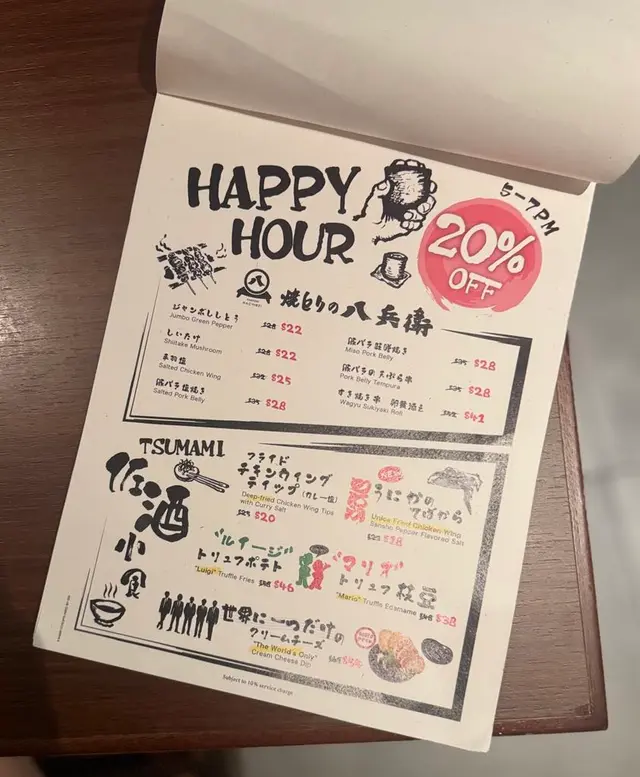 HAPPY
HOUR
5-7PM
20%
OFF
八
焼とりの八兵衛
ジャンボししとう
Jumbo Green Pepper
$28 $22
しいたけ
Shiitake Mushroom
$28 $22
手羽塩
Salted Chicken Wing
$32 $25
豚バラ塩焼き
Salted Pork Belly
$35 $28
豚バラ味噌焼き
Miso Pork Belly
$35 $28
豚バラの天ぷら串
Pork Belly Tempura
$35 $28
すき焼き串
Wagyu Sukiyaki Roll
$41
TSUMAMI
佐酒小食
フライド
チキンウイング
ティップ (カレー塩)
Deep-fried Chicken Wing Tips
with Curry Salt
$20
うにかの
てばから
Fried Chicken Wing
Sansho Pepper Flavored Salt
"ルイージ"
トリュフポテト
"Luigi" Truffle Fries $58 $46
"マリオ"
トリュフ枝豆
"Mario" Truffle Edamame $48 $38
世界に一つだけの
クリームチーズ
"The World's Only"
Cream Cheese Dip
Subject to 10% service charge